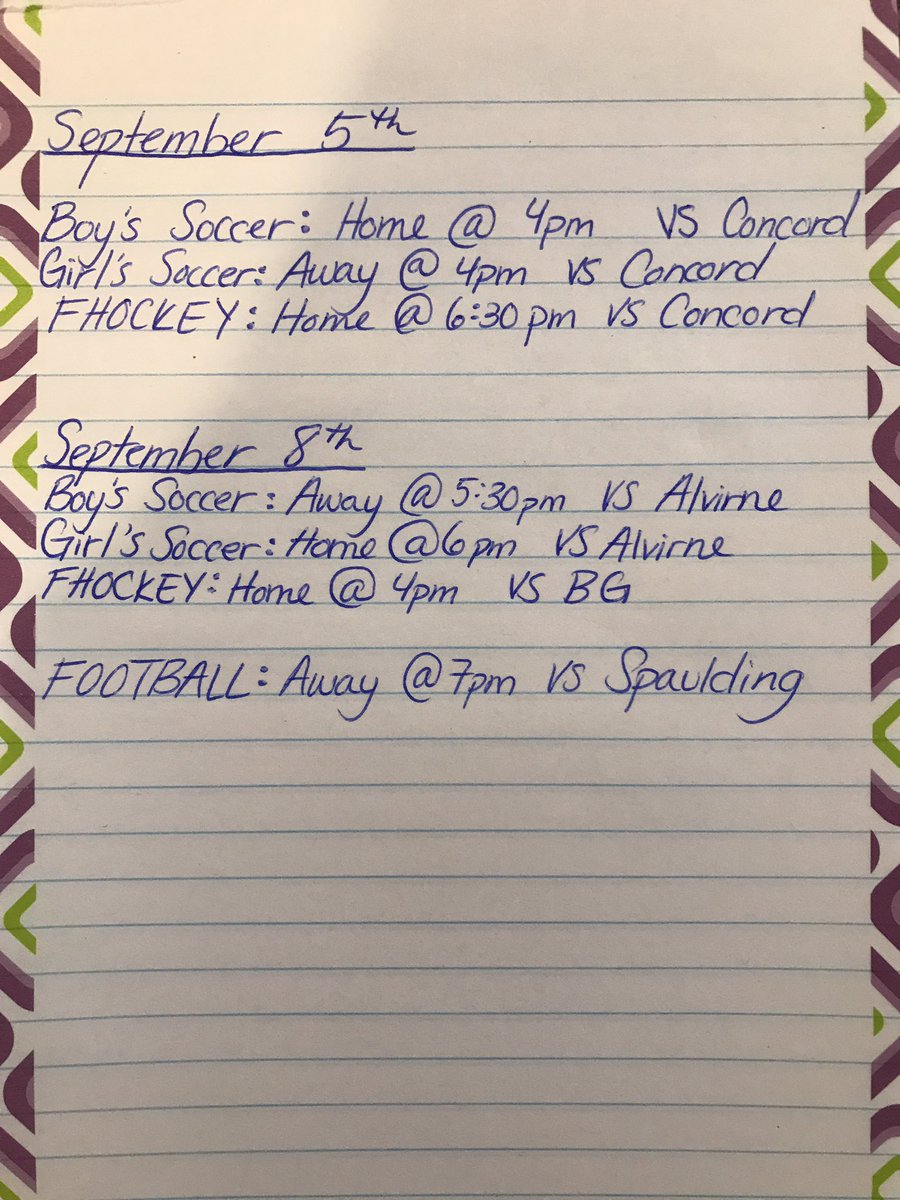 September 5th
Boy's Soccer: Home @ 4pm VS Concord
Girl's Soccer: Away @ 4pm VS Concord
FHOCKEY: Home @ 6:30pm VS Concord
September 8th
Boy's Soccer: Away @ 5:30pm VS Alvirne
Girl's Soccer: Home @ 6pm VS Alvirne
FHOCKEY: Home @ 4pm VS BG
FOOTBALL: Away @ 7pm VS Spaulding